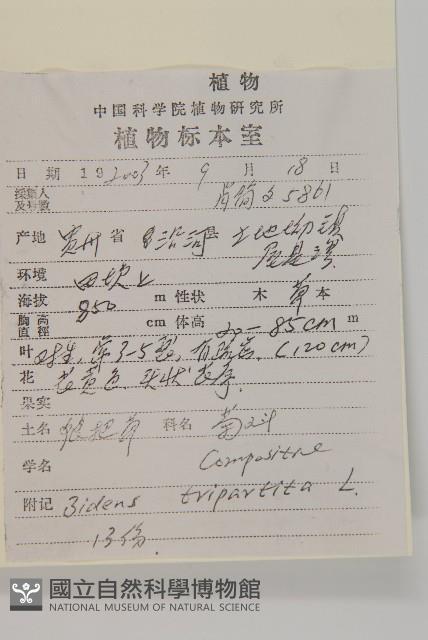 植物
中国科学院植物研究所
植物标本室
日期 19 2003年 9 月 18 日
採集人
及号数 肖简文 5861
产地 贵州省 沿河县 土地坳镇
环境 田坡上
海拔 850 m 性状 木 草本
胸高
直径 cm 体高 20-85cm m
叶 对生, 3-5裂, (120cm)
花 黄色 头状花序
果实
土名 狼把草 科名 菊科
学名 Compositae
附记 Bidens tripartita L.
13份.
國立自然科學博物館
NATIONAL MUSEUM OF NATURAL SCIENCE